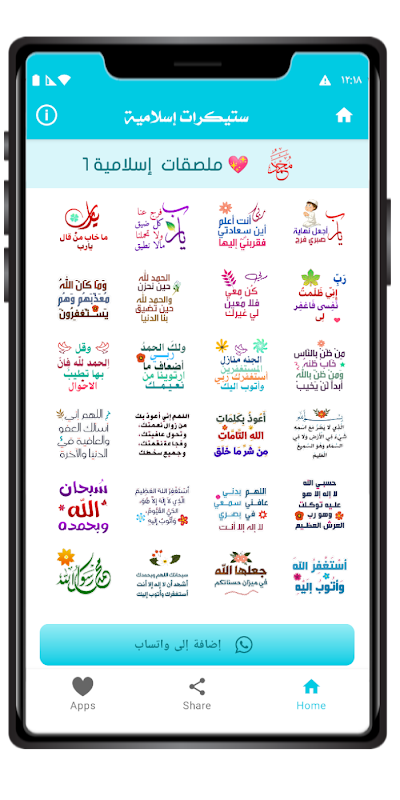 ١٢:١٨
ستيكرات إسلامية
ملصقات إسلامية ٦
يارب
أجعل نهاية
صبري فرج
أنت أعلم
أين سعادتي
فقربني إليها
فرج عنا
كل ضيق
ولا تحملنا
مالا نطيق
يارب
يارب
ما خاب من قال
يارب
رَبِّ
إِنِّي ظَلَمْتُ
نَفْسِي فَاغْفِرْ
لِي
ربي
كن معي
فلا معين
لي غيرك
الحمد لله
حين نحزن
والحمد لله
حين تضيق
بنا الدنيا
وَمَا كَانَ اللَّهُ
مُعَذِّبَهُمْ وَهُمْ
يَسْتَغْفِرُونَ
من ظن بالناس
خاب ظنه
ومن ظن بالله
أبدا لن يخيب
الجنه منازل
المستغفرين
أستغفرك ربي
وأتوب اليك
ولك الحمد
ربي
أضعاف ما
إرتوينا من
نعيمك
وقل
الحمد لله فإن
بها تطيب
الاحوال
الذي لا يضر مع اسمه
شيء في الأرض ولا في
السماء وهو السميع
العليم
أعوذ بكلمات
الله التامات
من شر ما خلق
اللهم إني أعوذ بك
من زوال نعمتك،
وتحول عافيتك،
وفجاءة نقمتك،
وجميع سخطك
اللهم إني
أسالك العفو
والعافية في
الدنيا والآخرة
حسبي الله
لا إله إلا هو
عليه توكلت
وهو رب
العرش العظيم
اللهم
عافني
بدني
سمعي
في بصري
لا إله إلا أنت
أستغفر الله العظيم
الذي لا إله إلا هو
الحي القيوم،
وأتوب إليه
سبحان
الله
وبحمده
أستغفر الله
وأتوب إليه
جعلها الله
في ميزان حسناتكم
سبحانك اللهم وبحمدك
أشهد أن لا إله إلا أنت
أستغفرك وأتوب إليك
محمد رسول الله
إضافة إلى واتساب
Apps
Share
Home